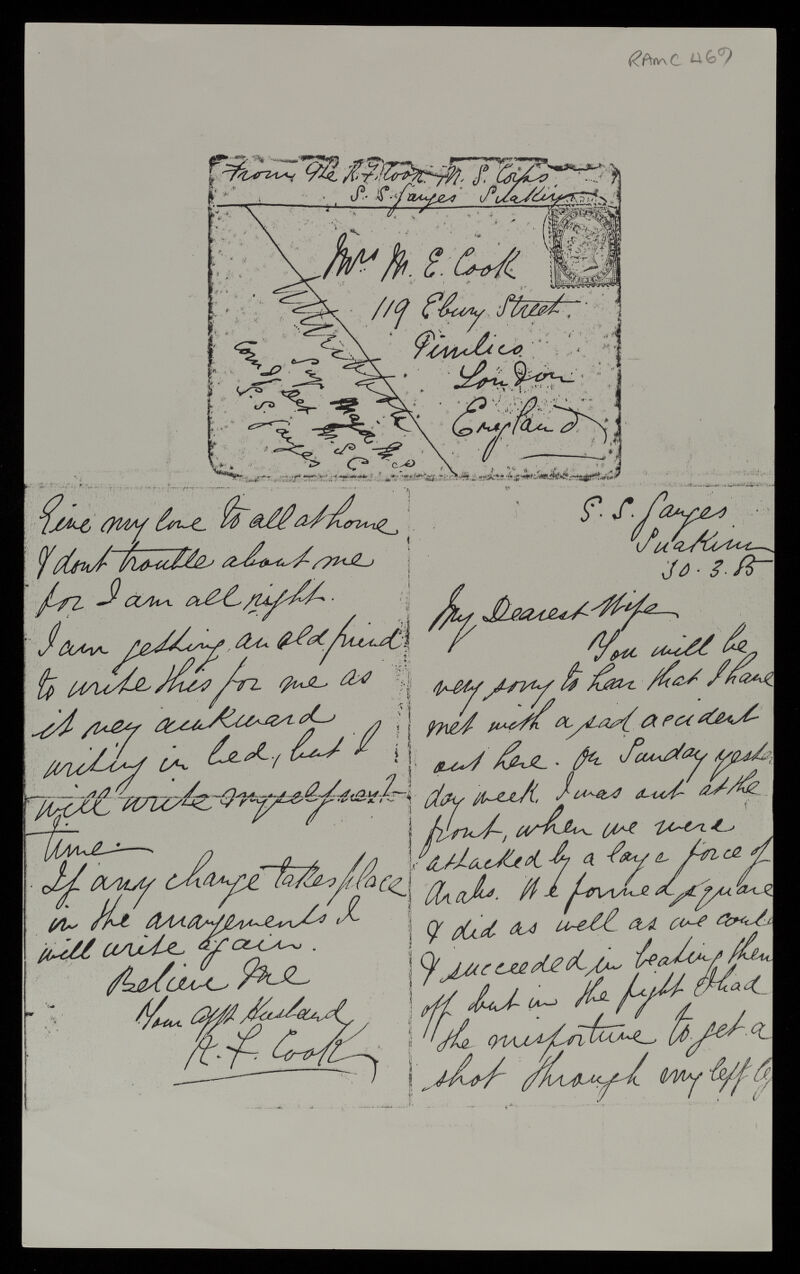 RAMC 469
From Pte R. F. Cook M. S. Corps
S. S. Ganges Suakim
Mrs M. E. Cook
119 Ebury Street.
Pimlico
London
England
Sur Major M.S.
Comdg Det M.S.C.
S.S. Ganges
S. S. Ganges
Suakim
30.3.85
My Dearest Wife
You will be
very sorry to hear that I have
met with a sad accident
out here. On Sunday yester
day week. I was out at the
front, when we were
attacked by a large force of
Arabs. We formed square
& did as well as we could
& succeeded in beating them
off but in the fight I had
the misfortune to get a
shot through my left leg
Give my love to all at home
& dont trouble about me
for I am all right.
I am getting an old friend
to write this for me as
it vey awkward
writing in bed, but I
will write myself next
time.
If any change takes place
in the arrangements I
will write again.
Believe Me
Your afft Husband
R. F. Cook